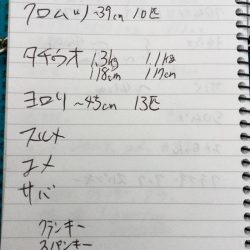 クロムツ ~39cm 10匹
タチウオ 1.3kg 1.1kg
118cm 117cm
ヨロリ ~45cm 13匹
スルメ
ユメ
サバ
クランキー
スパンキー